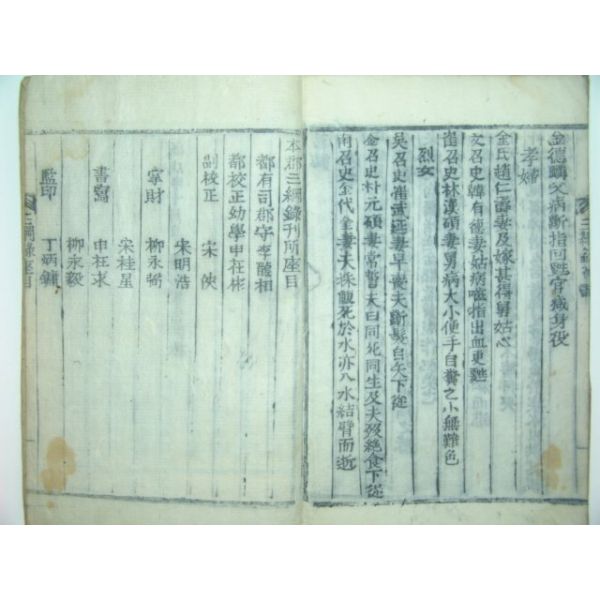 金德麟父病斷指回甦官減身役
孝婦
金氏趙仁壽妻及嫁甚得舅姑心
文召史韓有德妻姑病嚙指出血更甦
崔召史林漢碩妻舅病大小便手自糞之小無難色
烈女
吳召史崔武延妻早喪夫斷髮自矢下從
金召史朴元碩妻常誓夫曰同死同生及夫歿絶食下從
向召史金代金妻夫採鰒死於水亦入水結臂而逝
三綱錄
本郡三綱錄刊所座目
都有司郡守李 相
都校正幼學申在彬
副校正 宋俠
宋明浩
宰財 柳永
宋桂星
書寫 申在求
柳永毅
監印 丁炳
三綱錄座目